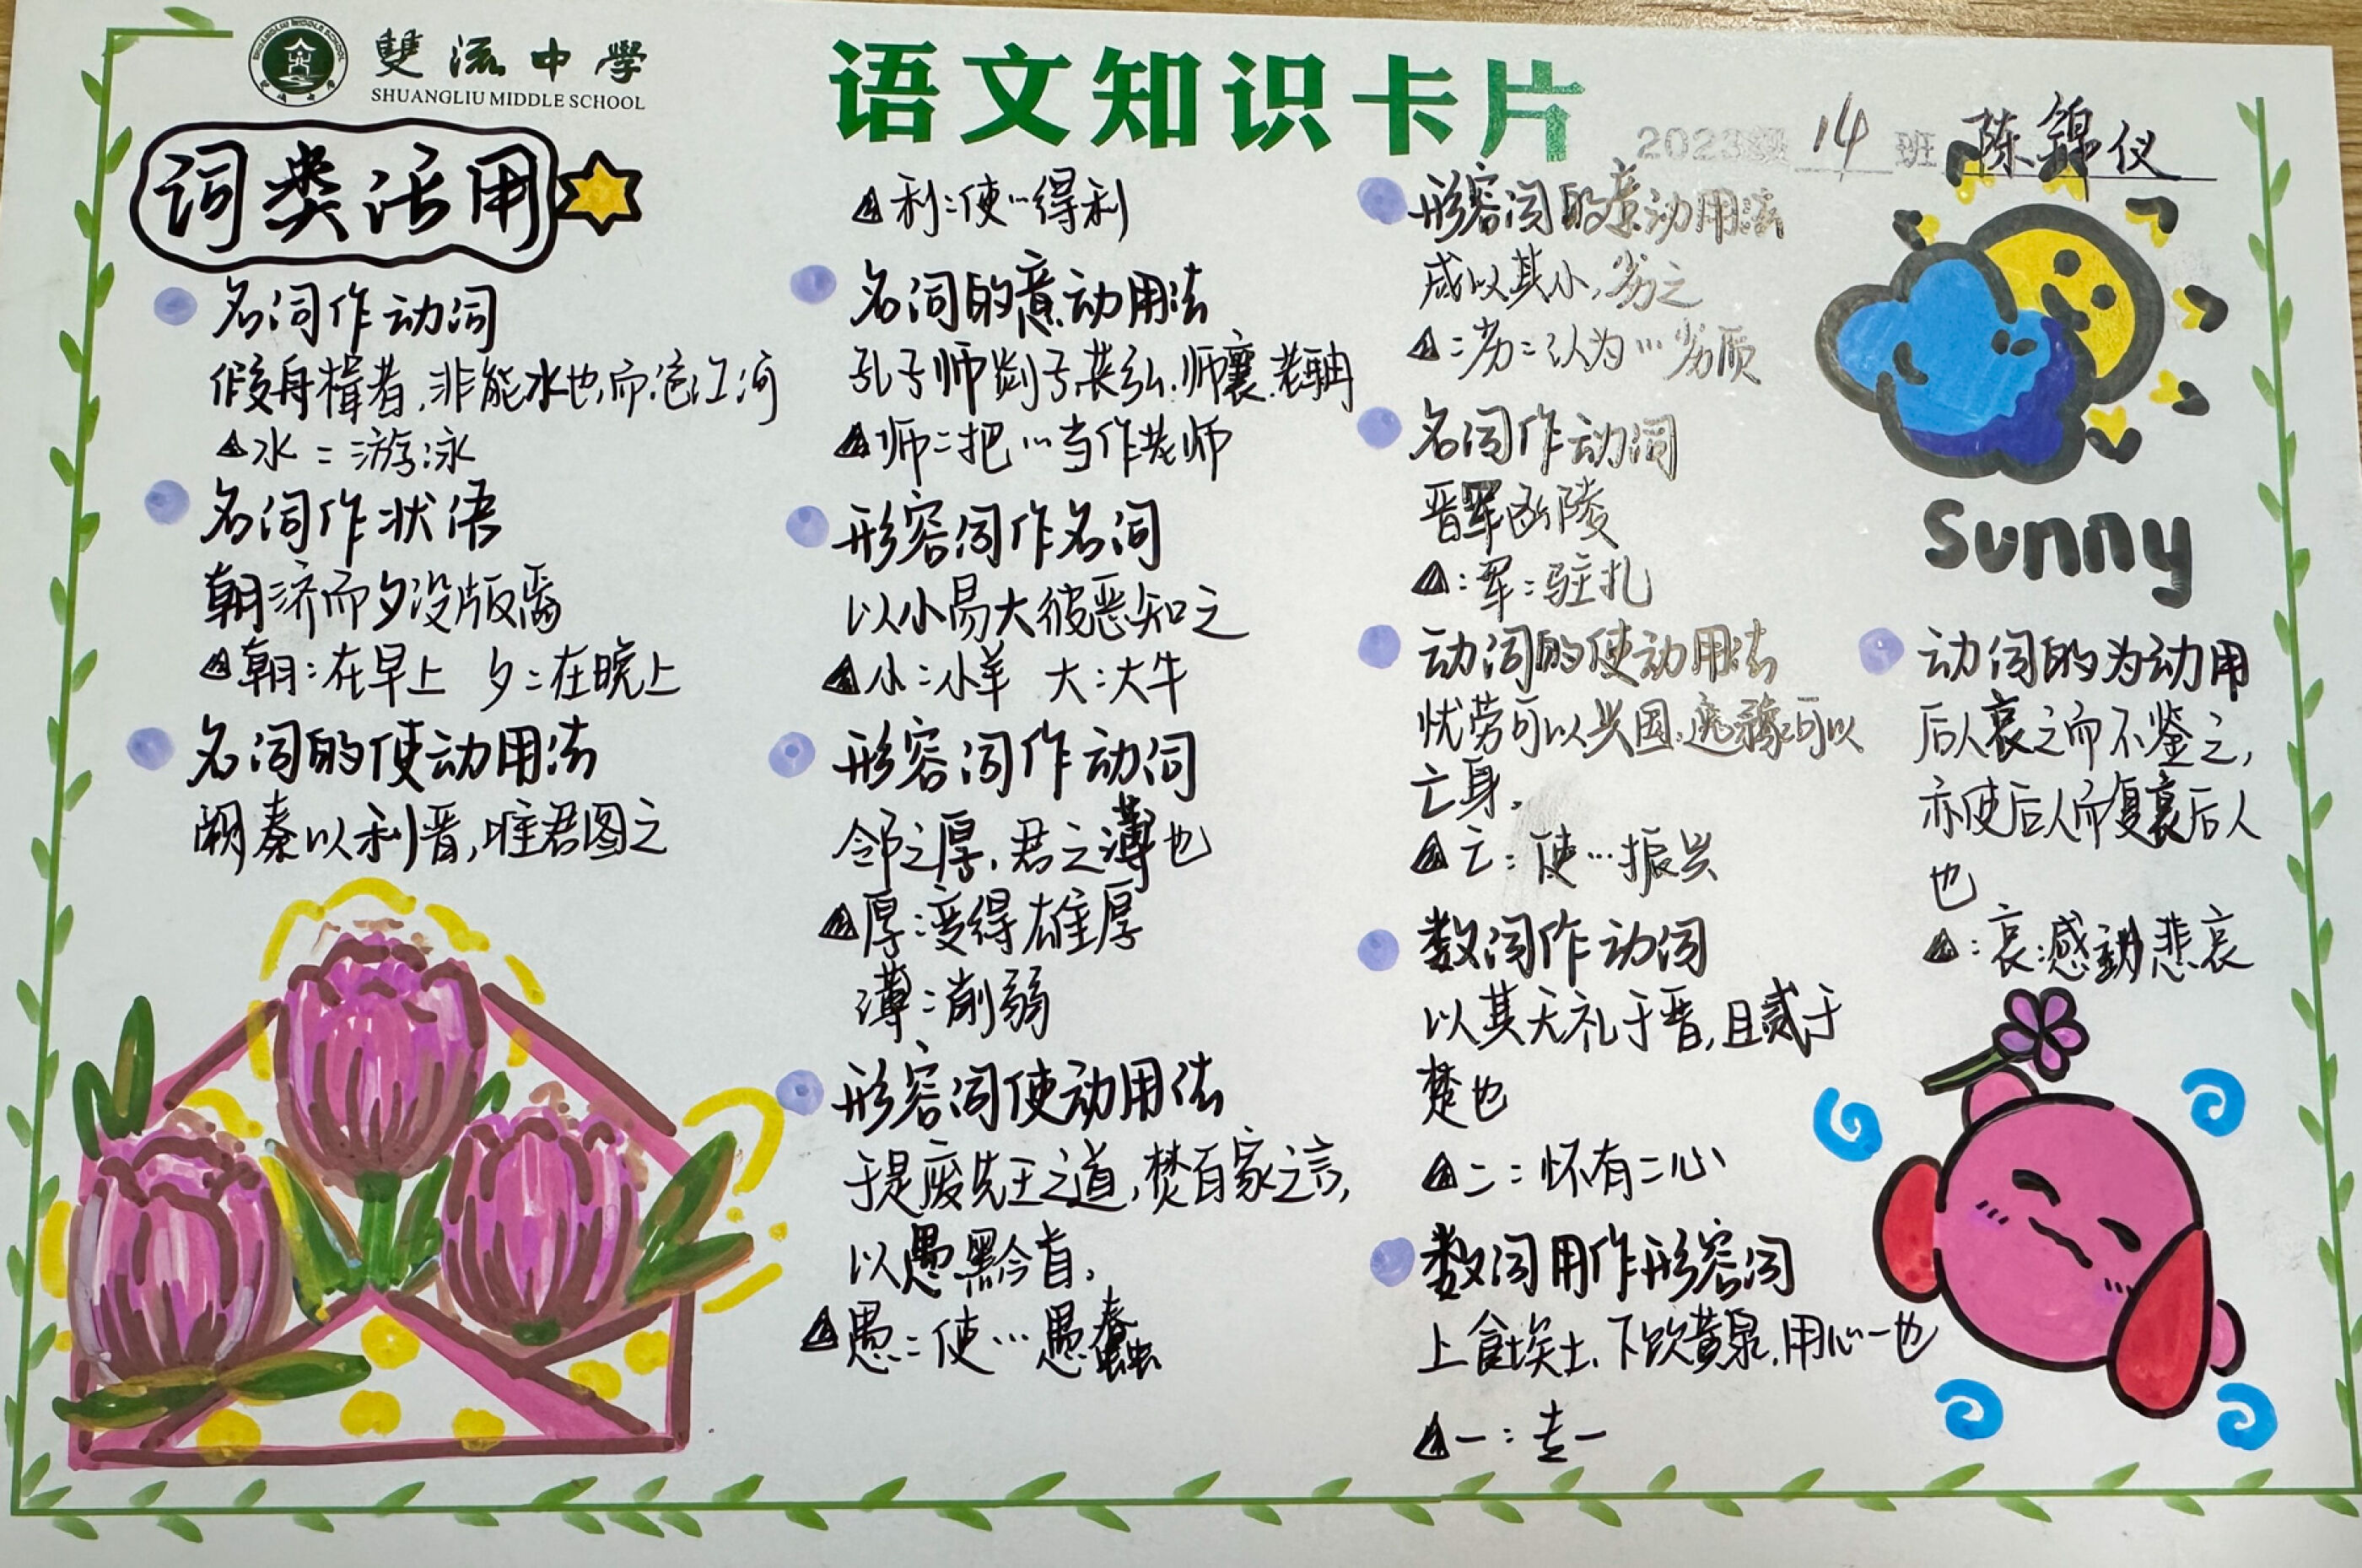 雙流中學
SHUANGLIU MIDDLE SCHOOL
语文知识卡片
2023级 14 班 陈锦仪
词类活用
名词作动词
假舟楫者,非能水也,而绝江河
水:游泳
名词作状语
朝济而夕设版焉
朝:在早上 夕:在晚上
名词的使动用法
阙秦以利晋,唯君图之
利:使…得利
名词的意动用法
孔子师郯子、苌弘、师襄、老聃
师:把…当作老师
形容词作名词
以小易大彼恶知之
小:小羊 大:大牛
形容词作动词
邻之厚,君之薄也
厚:变得雄厚
薄:削弱
形容词使动用法
于是废先王之道,焚百家之言,
以愚黔首,
愚:使…愚蠢
形容词的意动用法
成以其小,劣之
:劣:认为…劣质
名词作动词
晋军函陵
:军:驻扎
动词的使动用法
忧劳可以兴国,逸豫可以
亡身,
亡:使…振兴
数词作动词
以其无礼于晋,且贰于
楚也
二:怀有二心
数词用作形容词
上食埃土,下饮黄泉,用心一也
一:专一
Sunny
动词的为动用
后人哀之而不鉴之,
亦使后人而复哀后人
也
:哀:感到悲哀